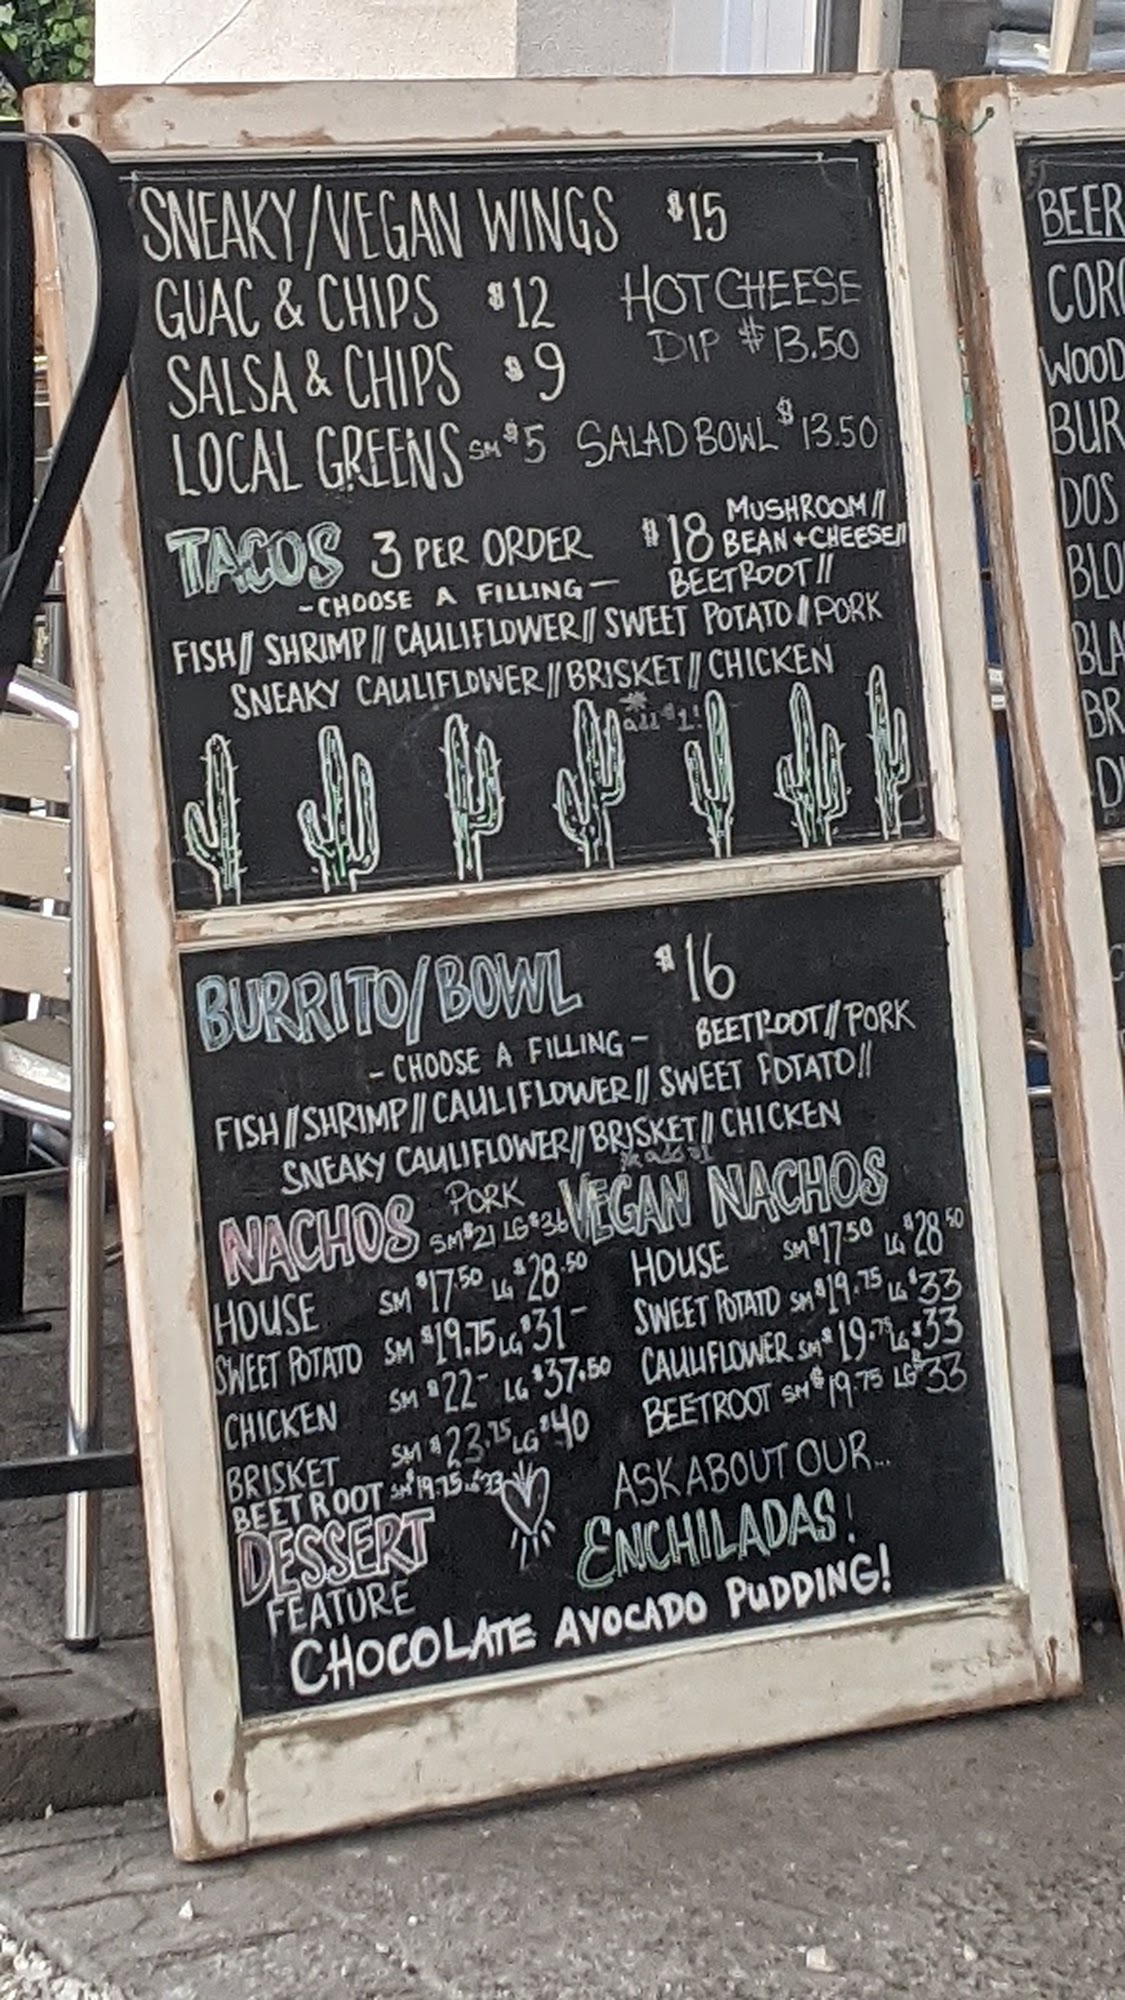 SNEAKY/VEGAN WINGS $15
GUAC & CHIPS $12
HOT CHEESE
DIP $13.50
SALSA & CHIPS $9
LOCAL GREENS SM $5 SALAD BOWL $13.50
TACOS 3 PER ORDER $18
MUSHROOM//
BEAN + CHEESE//
-CHOOSE A FILLING- BEETROOT//
FISH// SHRIMP// CAULIFLOWER// SWEET POTATO// PORK
SNEAKY CAULIFLOWER// BRISKET// CHICKEN
* add $1!
BURRITO/BOWL $16
-CHOOSE A FILLING- BEETROOT// PORK
FISH// SHRIMP// CAULIFLOWER// SWEET POTATO//
SNEAKY CAULIFLOWER// BRISKET// CHICKEN
* add $1
NACHOS PORK
SM $21 LG $36
HOUSE SM $17.50 LG $28.50
SWEET POTATO SM $19.75 LG $31-
CHICKEN SM $22- LG $37.50
BRISKET SM $23.75 LG $40
BEETROOT SM $19.75 LG $33
VEGAN NACHOS
HOUSE SM $17.50 LG $28.50
SWEET POTATO SM $19.75 LG $33
CAULIFLOWER SM $19.75 LG $33
BEETROOT SM $19.75 LG $33
ASK ABOUT OUR...
ENCHILADAS!
DESSERT
FEATURE
CHOCOLATE AVOCADO PUDDING!
BEER
CORO
WOOD
BUR
DOS
BLO
BLA
BR
D